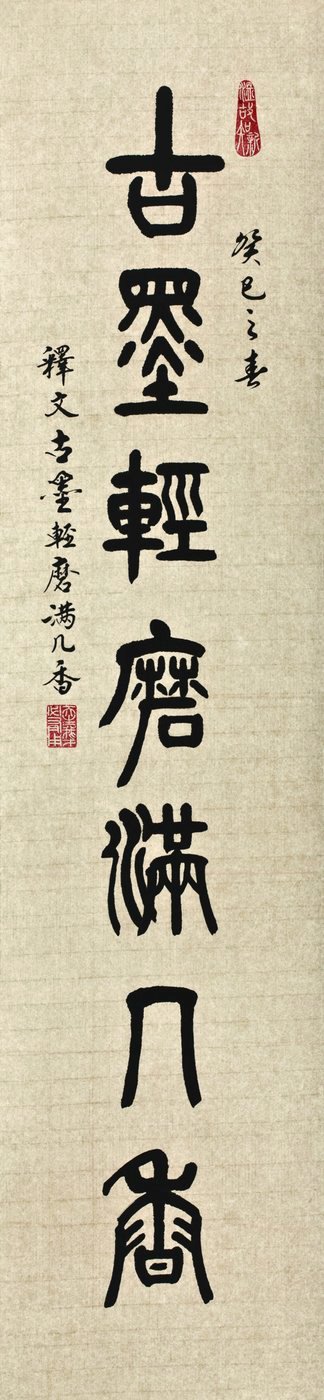 温故知新
癸巳之春
古墨輕磨滿几香
釋文古墨輕磨满几香